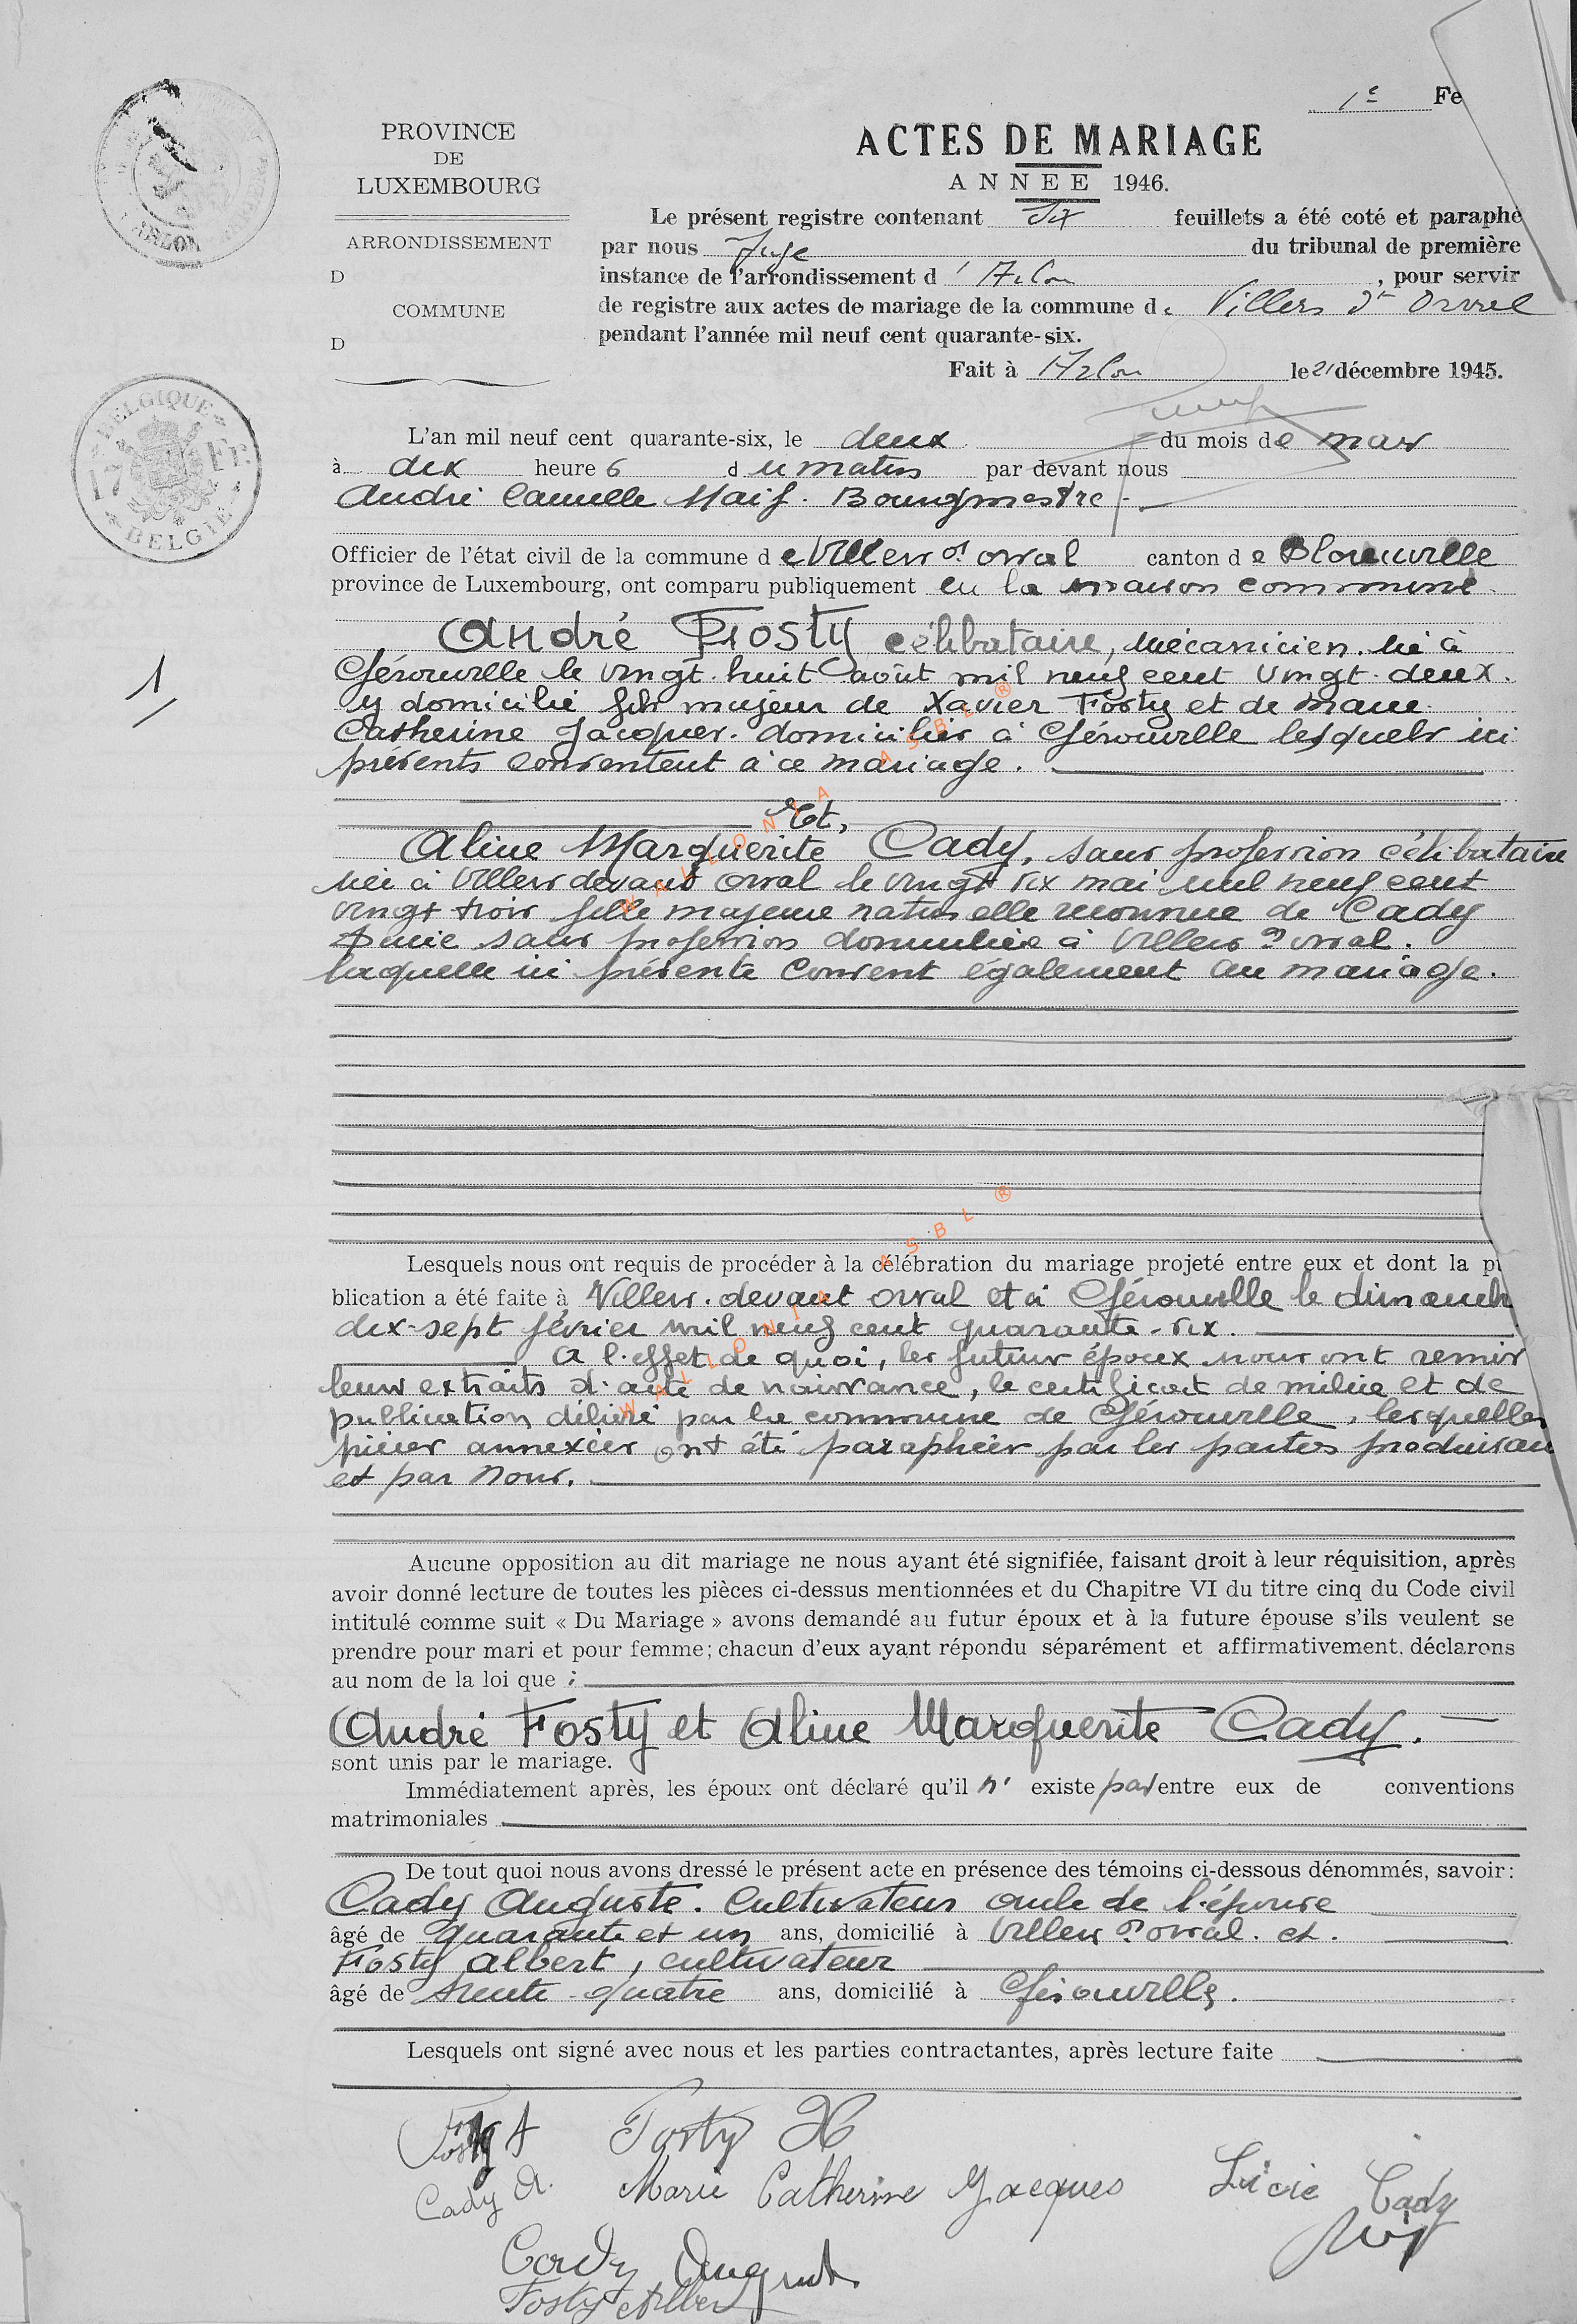 1e Fe
PROVINCE
DE
LUXEMBOURG
ARRONDISSEMENT
D
COMMUNE
D
ACTES DE MARIAGE
ANNEE 1946.
Le présent registre contenant Six feuillets a été coté et paraphé
par nous Juge du tribunal de première
instance de l'arrondissement d 'Arlon, pour servir
de registre aux actes de mariage de la commune de Villers dt Orval
pendant l'année mil neuf cent quarante-six.
Fait à Arlon le 21 décembre 1945.
ARLON
BELGIQUE
17 Fr.
BELGIE
L'an mil neuf cent quarante-six, le deux du mois de mars
à dix heure s du matin par devant nous
André Camille Maif. Bourgmestre.
Officier de l'état civil de la commune de Villers dt orval canton de Florenville
province de Luxembourg, ont comparu publiquement en la maison commune.
1
André Fosty célibataire, mécanicien. né à
Gérouville le vingt.huit août mil neuf cent vingt.deux.
y domicilié fils majeur de Xavier Fosty et de Marie.
Catherine Jacques. domiciliés à Gérouville lesquels ici
présents consentent à ce mariage.
Et,
Aline Marguerite Cady, sans profession célibataire
née à Villers devant Orval le vingt six mai mil neuf cent
vingt trois fille majeure naturelle reconnue de Cady
Lucie sans profession domiciliée à Villers dt orval.
laquelle ici présente consent également au mariage.
Lesquels nous ont requis de procéder à la célébration du mariage projeté entre eux et dont la pu
blication a été faite à Villers.devant orval et à Gérouville le dimanch
dix-sept février mil neuf cent quarante-six.
A l'effet de quoi, les futurs époux nous ont remis
leurs extraits d'acte de naissance, le certificat de milice et de
publication délivré par la commune de Gérouville, lesquelles
pièces annexées ont été paraphées par les parties produisan
et par nous.
Aucune opposition au dit mariage ne nous ayant été signifiée, faisant droit à leur réquisition, après
avoir donné lecture de toutes les pièces ci-dessus mentionnées et du Chapitre VI du titre cinq du Code civil
intitulé comme suit « Du Mariage » avons demandé au futur époux et à la future épouse s'ils veulent se
prendre pour mari et pour femme; chacun d'eux ayant répondu séparément et affirmativement, déclarons
au nom de la loi que :
André Fosty et Aline Marguerite Cady.
sont unis par le mariage.
Immédiatement après, les époux ont déclaré qu'il n' existe pas entre eux de conventions
matrimoniales
De tout quoi nous avons dressé le présent acte en présence des témoins ci-dessous dénommés, savoir:
Cady Auguste. Cultivateur oncle de l'épouse
âgé de quarante et un ans, domicilié à Villers dt orval. et.
Fosty Albert, cultivateur
âgé de trente-quatre ans, domicilié à Gérouville.
Lesquels ont signé avec nous et les parties contractantes, après lecture faite
Fosty A Fosty X
Cady A. Marie Catherine Jacques Lucie Cady
Cady August
Fosty Albert
WALLONIA ASBL ®
WALLONIA ASBL ®